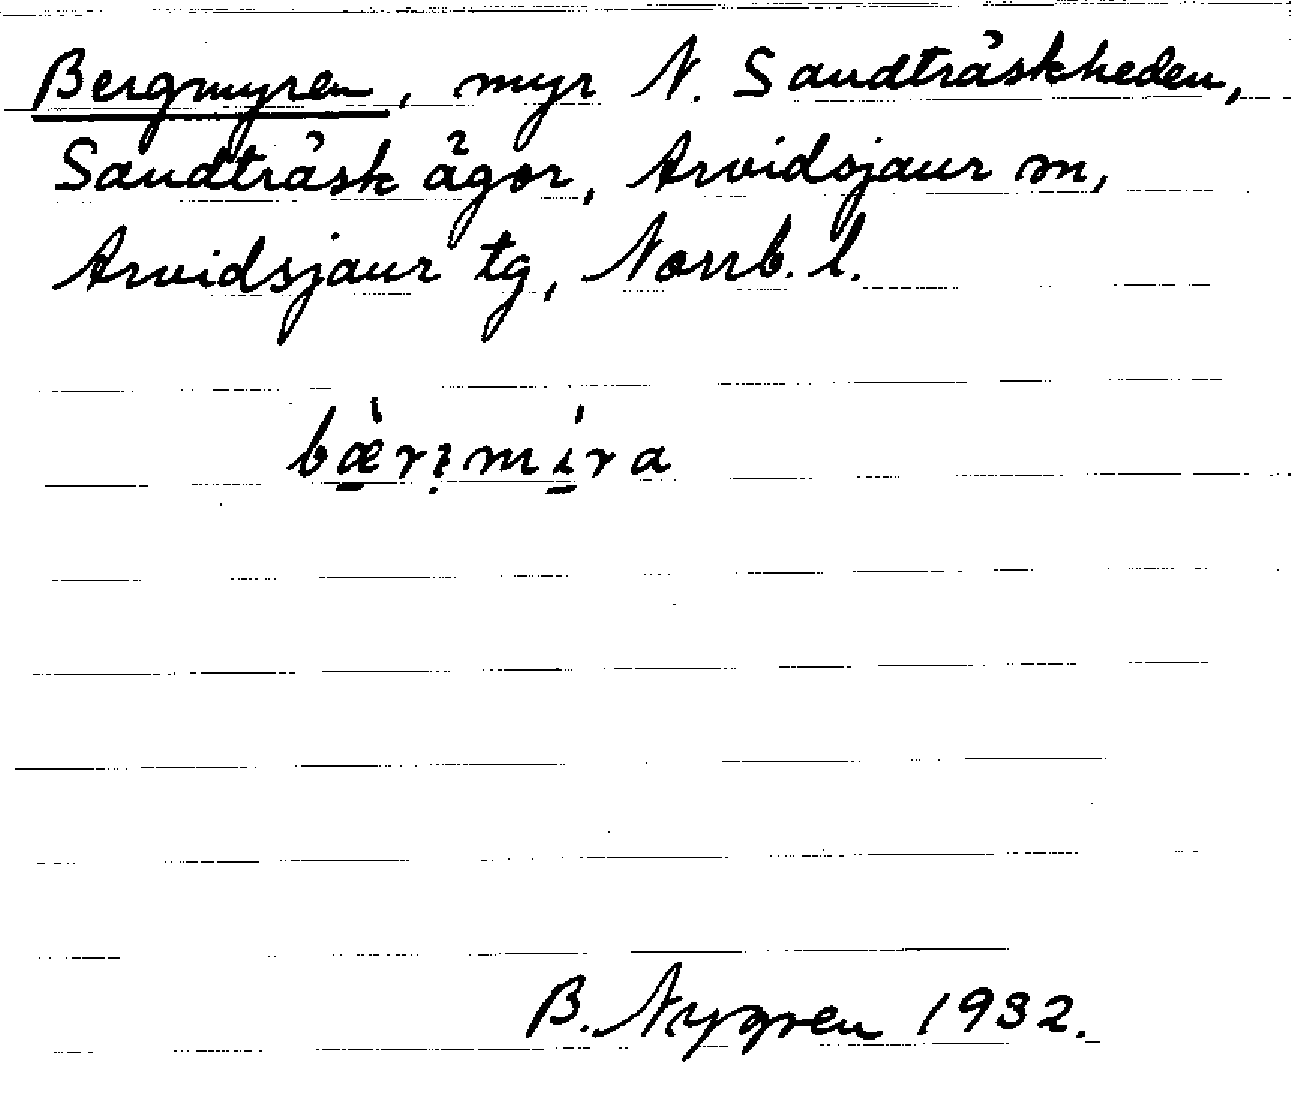 Bergmyren, myr N. Sandträskheden,
Sandträsk ägor, Arvidsjaur sn,
Arvidsjaur tg, Norrb. l.
B. Nygren 1932.